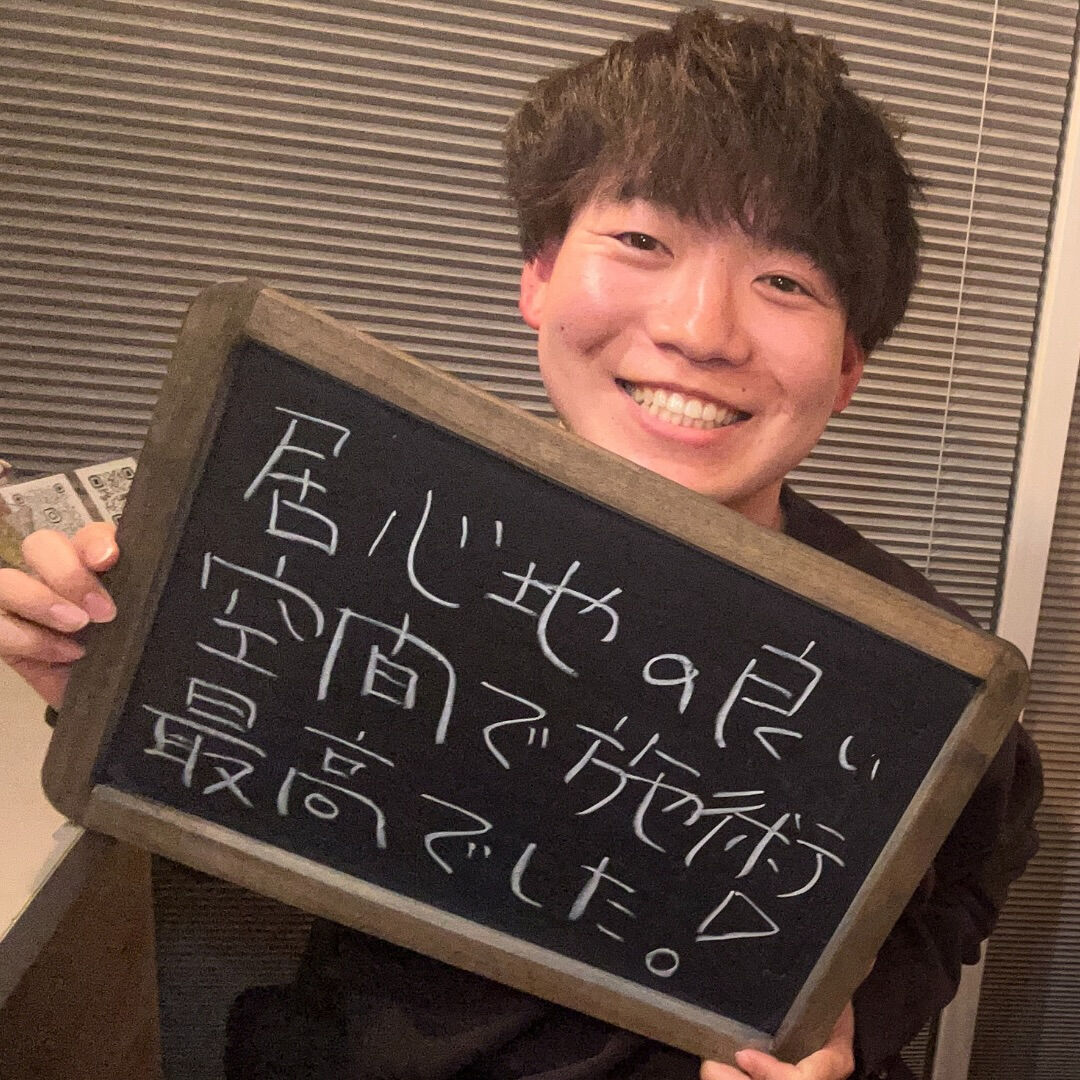 居心地の良い
空間で施術
最高でした!